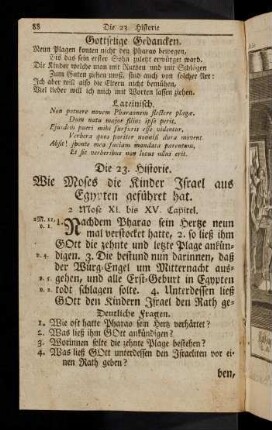 88 Die 23. Historie
Gottselige Gedancken.
Neun Plagen konten nicht den Pharao bewegen,
Biß daß sein erster Sohn zuletzt erwürget ward.
Die Kinder welche man mit Ruthen und mit Schlägen
Zum Guten ziehen muß, sind auch von solcher Art:
Ich aber will also die Eltern nicht bemühen,
Viel lieber will ich mich mit Worten lassen ziehen.
Lateinisch.
Non potuere novem Pharaonem flectere plagæ.
Dum natu major filius ipse perit.
Ejusdem pueri mihi furfuris esse videntur,
Verbera quos pariter nonnisi dura movent.
Absit! sponte mea faciam mandata parentum,
Et sic verberibus non locus ullus erit.
Die 23. Historie.
Wie Moses die Kinder Israel aus
Egypten geführet hat.
2 Mose XI. bis XV. Capitel.
2 M. 11.
v. 1.
1. Nachdem Pharao sein Hertze neun
mal verstocket hatte, 2. so ließ ihm
GOtt die zehnte und letzte Plage ankün-
v. 4. digen. 3. Die bestund nun darinnen, daß
der Würg-Engel um Mitternacht aus-
v. 5. gehen, und alle Erst-Geburt in Egypten
todt schlagen solte. 4. Unterdessen ließ
GOtt den Kindern Israel den Rath ge-
Deutliche Fragen.
1. Wie oft hatte Pharao sein Hertz verhärtet?
2. Was ließ ihm GOtt ankündigen?
3. Worinnen solte die zehnte Plage bestehen?
4. Was ließ GOtt unterdessen den Israeliten vor ei-
nen Rath geben?
ben,